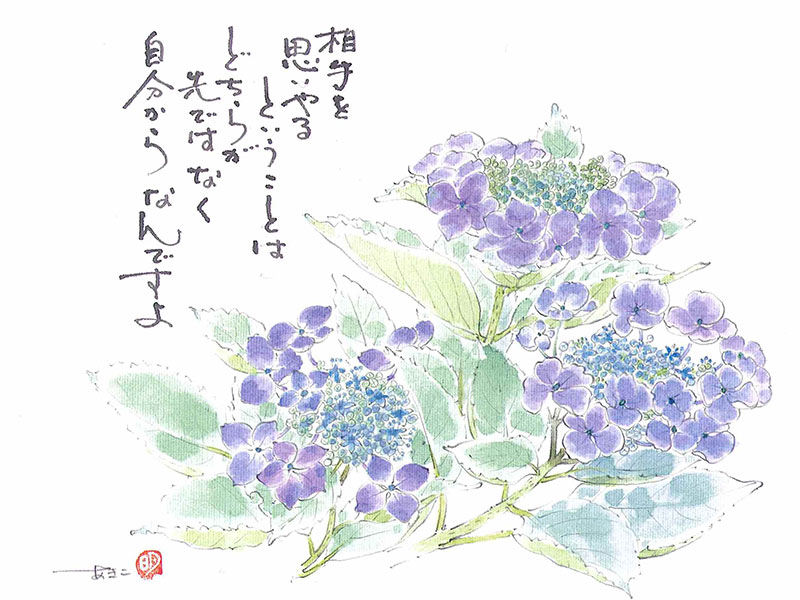 相手を
思いやる
ということは
どちらが
先ではなく
自分から なんですよ
あきこ